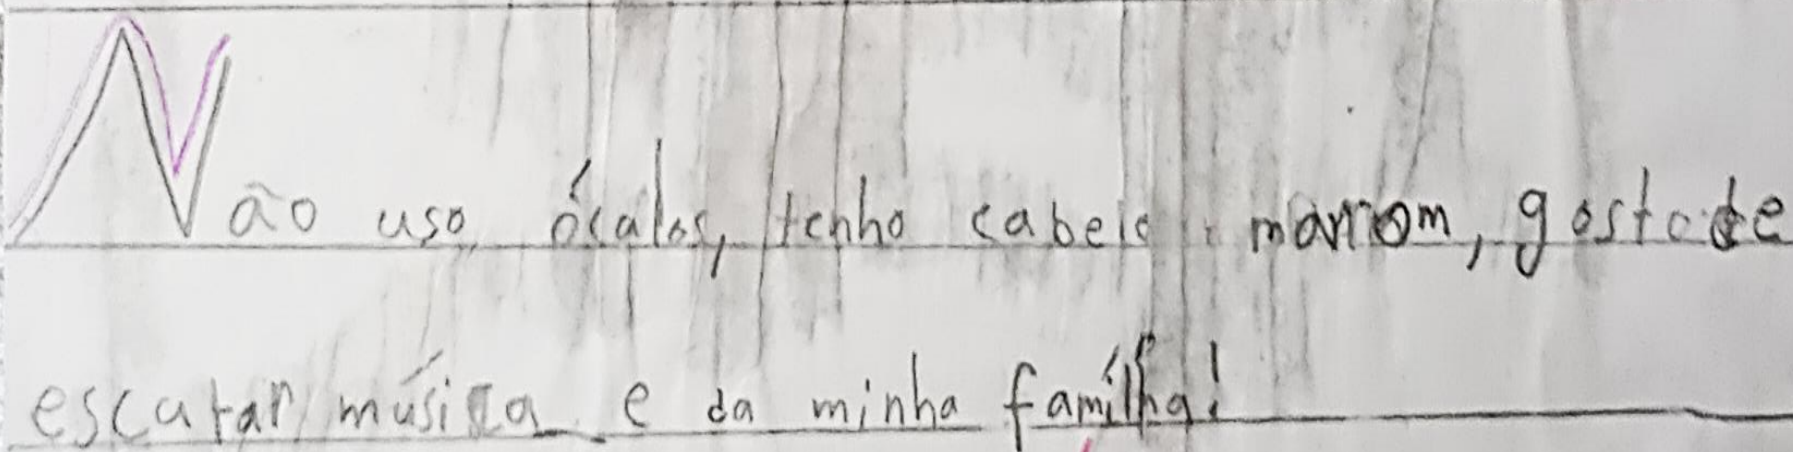 Não uso óculos, tenho cabelo marrom, gosto de
escutar música e da minha famílha!